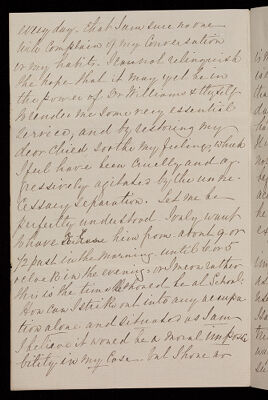 every day. that I am sure no one
will complain of my Conversation
or my habits. I cannot relinquish
the hope that it may yet be in
the power of Dr Williams & thyself
to render me some very essential
service, and by restoring my
dear Child, soothe my feelings, which
I feel have been cruelly and
agressively agitated by the unne-
cessary separation. Let me be
perfectly understood. I only want
to have him from about 9 or
½ past in the morning until 4 or 5
o'clock in the evening, or I mean rather
this is the time he should be at School.
How can I strike out into any occupa
tion alone and situated as I am
I believe it would be a moral impossi
bility in my Case. but I have no